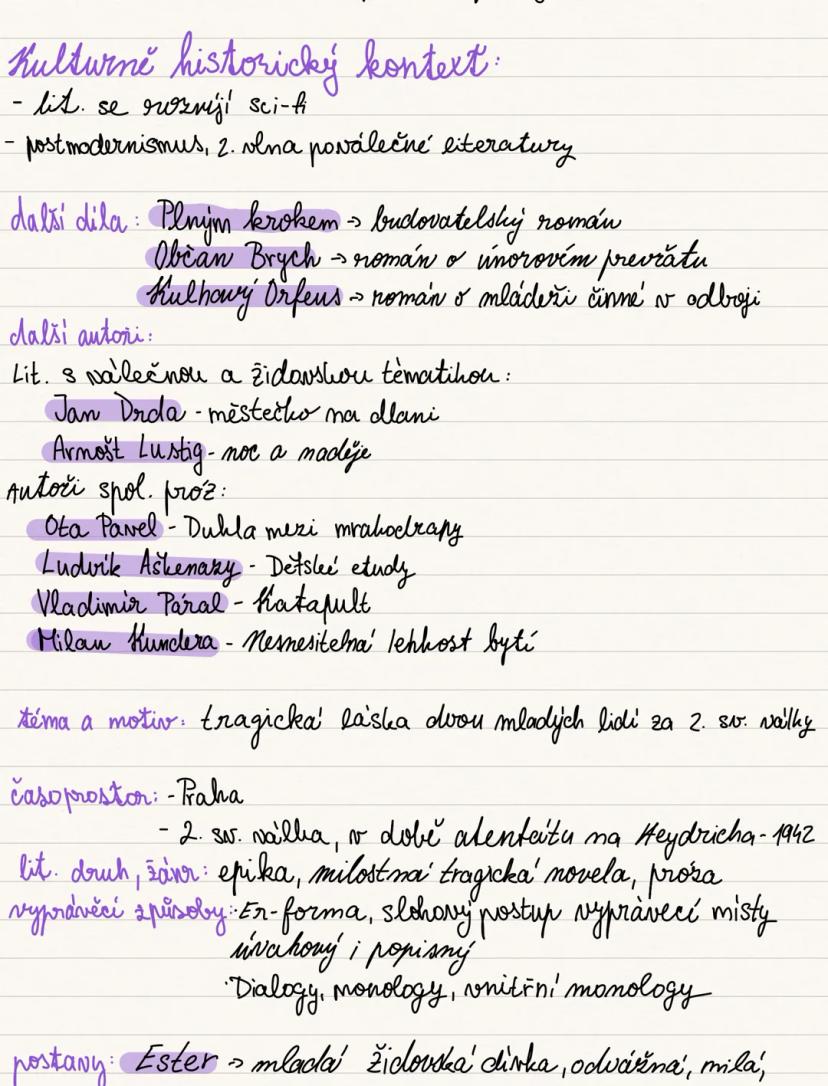 Kulturně historický kontext:
- lit. se rozvíjí sci-fi
- postmodernismus, 2. vlna poválečné literatury
další díla: Plným krokem → budovatelský román
Občan Brych → román o únorovím převrátu
Kulhový Orfeus → román o mládeži činné v odboji
další autoři:
Lit. s válečnou a židovskou tématikou:
Jan Drda - městečko na dlani
Arnošt Lustig - noc a naděje
Autoři spol. próz:
Ota Pavel - Dukla mezi mrakodrapy
Ludvík Aškenazy - Dětské etudy
Vladimír Páral - Katapult
Milan Kundera - Nesnesitelná lehkost bytí
téma a motiv: tragická láska dvou mladých lidí za 2. sv. války
časoprostor: - Praha
- 2. sv. válka, v době atentátu na Heydricha - 1942
lit. druh, žánr: epika, milostná tragická novela, próza
vyprávěcí způsoby: · Er-forma, slohový postup vyprávecí místy
úvahový i popisný
· Dialogy, monology, vnitřní monology
postavy: Ester → mladá židovská dívka, odvážná, milá,